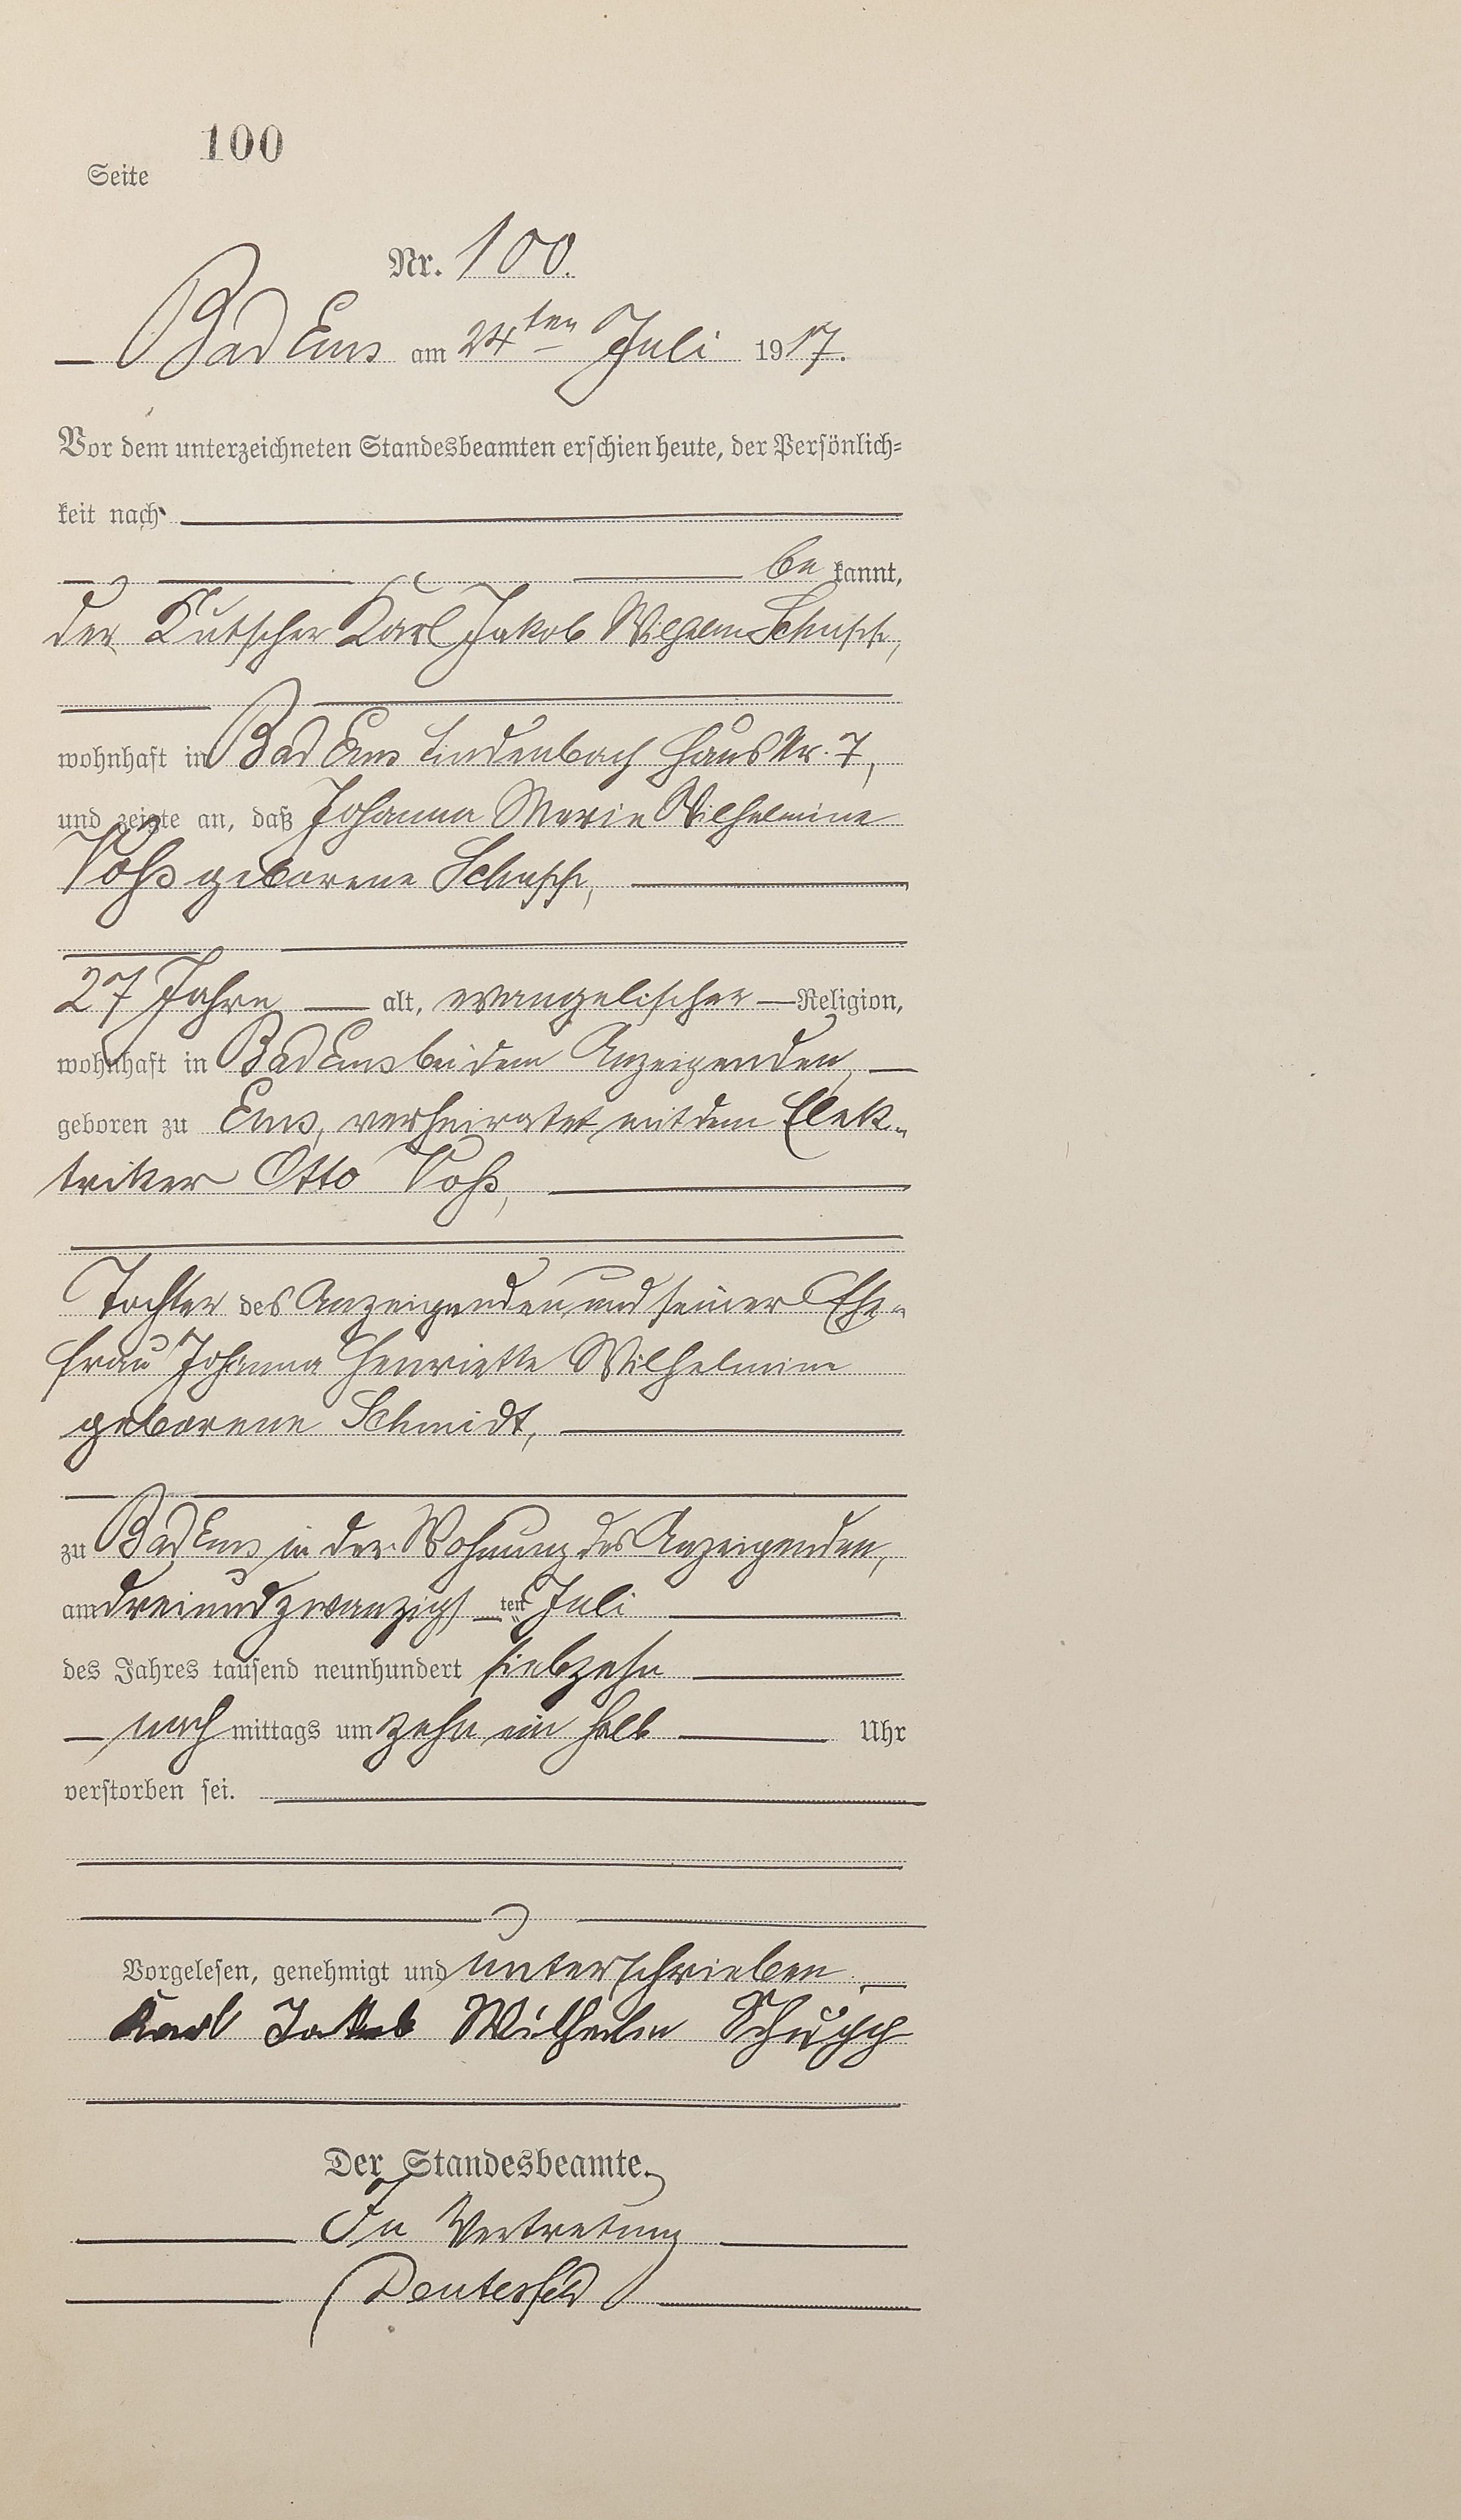 100
Seite
Nr. 100.
Bad Ems am 24ten Juli 1917.
Vor dem unterzeichneten Standesbeamten erschien heute, der Persönlich=
keit nach
be kannt,
der Kutscher Karl Jakob Wilhelm Schupp,
wohnhaft in Bad Ems Lindenbach Haus Nr. 7,
und zeigte an, daß Johanna Marie Wilhelmine
Voß geborene Schupp,
27 Jahre alt, evangelischer Religion,
wohnhaft in Bad Ems bei dem Anzeigenden,
geboren zu Ems, verheiratet mit dem Elek-
triker Otto Voß,
Tochter des Anzeigenden und seiner Ehe-
frau Johanna Henriette Wilhelmine
geborene Schmidt,
zu Bad Ems in der Wohnung des Anzeigenden,
am dreiundzwanzigsten Juli
des Jahres tausend neunhundert siebzehn
nach mittags um zehn ein halb Uhr
verstorben sei.
Vorgelesen, genehmigt und unterschrieben.
Karl Jakob Wilhelm Schupp
Der Standesbeamte.
In Vertretung